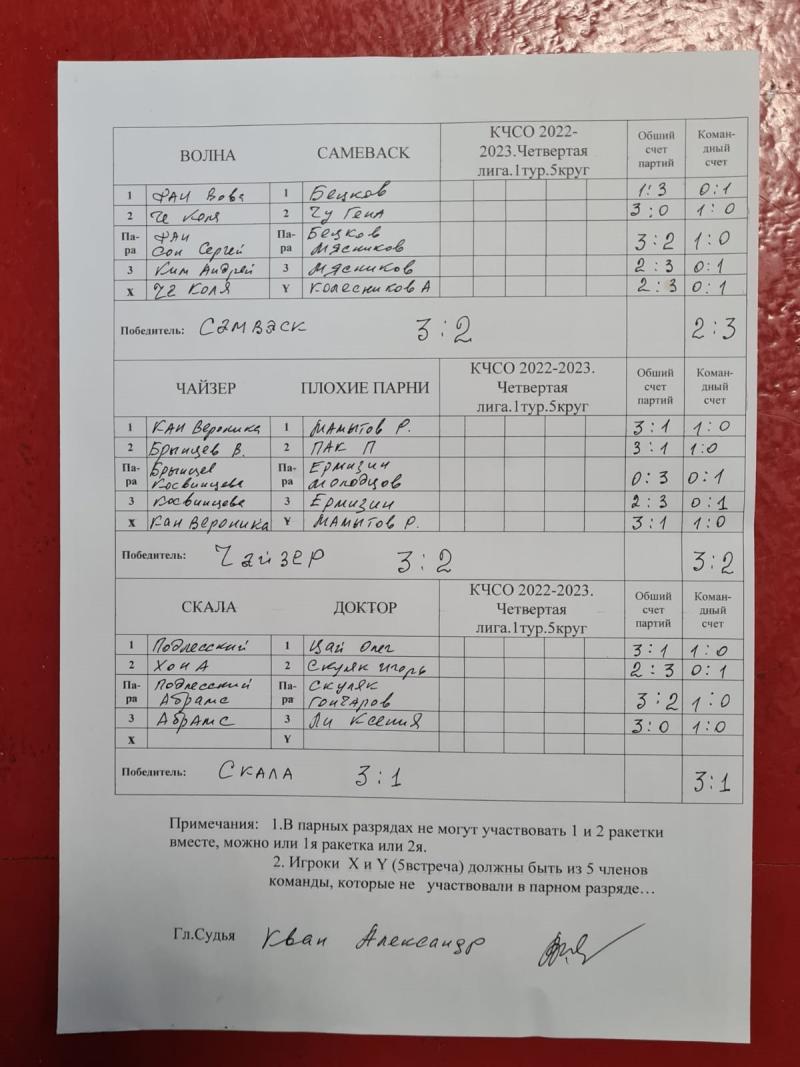 ВОЛНА САМЕВАСК КЧСО 2022-2023.Четвертая лига.1тур.5круг Обший счет партий Коман-дный счет
1 ФАИ Вова 1 Бецков 1:3 0:1
2 Че Коля 2 Чу Гена 3:0 1:0
Па-ра ФАИ Сон Сергей Па-ра Бецков Мясников 3:2 1:0
3 Ким Андрей 3 Мясников 2:3 0:1
X Че Коля Y Колесников А 2:3 0:1
Победитель: Сэмвэск 3:2 2:3
ЧАЙЗЕР ПЛОХИЕ ПАРНИ КЧСО 2022-2023. Четвертая лига.1тур.5круг Обший счет партий Коман-дный счет
1 Кан Вероника 1 Мамытов Р. 3:1 1:0
2 Брынцев В. 2 ПАК П 3:1 1:0
Па-ра Брынцев Косвинцева Па-ра Ермизин Молодцов 0:3 0:1
3 Косвинцева 3 Ермизин 2:3 0:1
X Кан Вероника Y Мамытов Р. 3:1 1:0
Победитель: Чайзер 3:2 3:2
СКАЛА ДОКТОР КЧСО 2022-2023. Четвертая лига.1тур.5круг Обший счет партий Коман-дный счет
1 Подлесский 1 Цай Олег 3:1 1:0
2 Хон А 2 Скуляк Игорь 2:3 0:1
Па-ра Подлесский Абрамс Па-ра Скуляк Гончаров 3:2 1:0
3 Абрамс 3 Ли Ксения 3:0 1:0
X Y
Победитель: Скала 3:1 3:1
Примечания: 1.В парных разрядах не могут участвовать 1 и 2 ракетки
вместе, можно или 1я ракетка или 2я.
2. Игроки X и Y (5встреча) должны быть из 5 членов
команды, которые не участвовали в парном разряде…
Гл.Судья Кван Александр